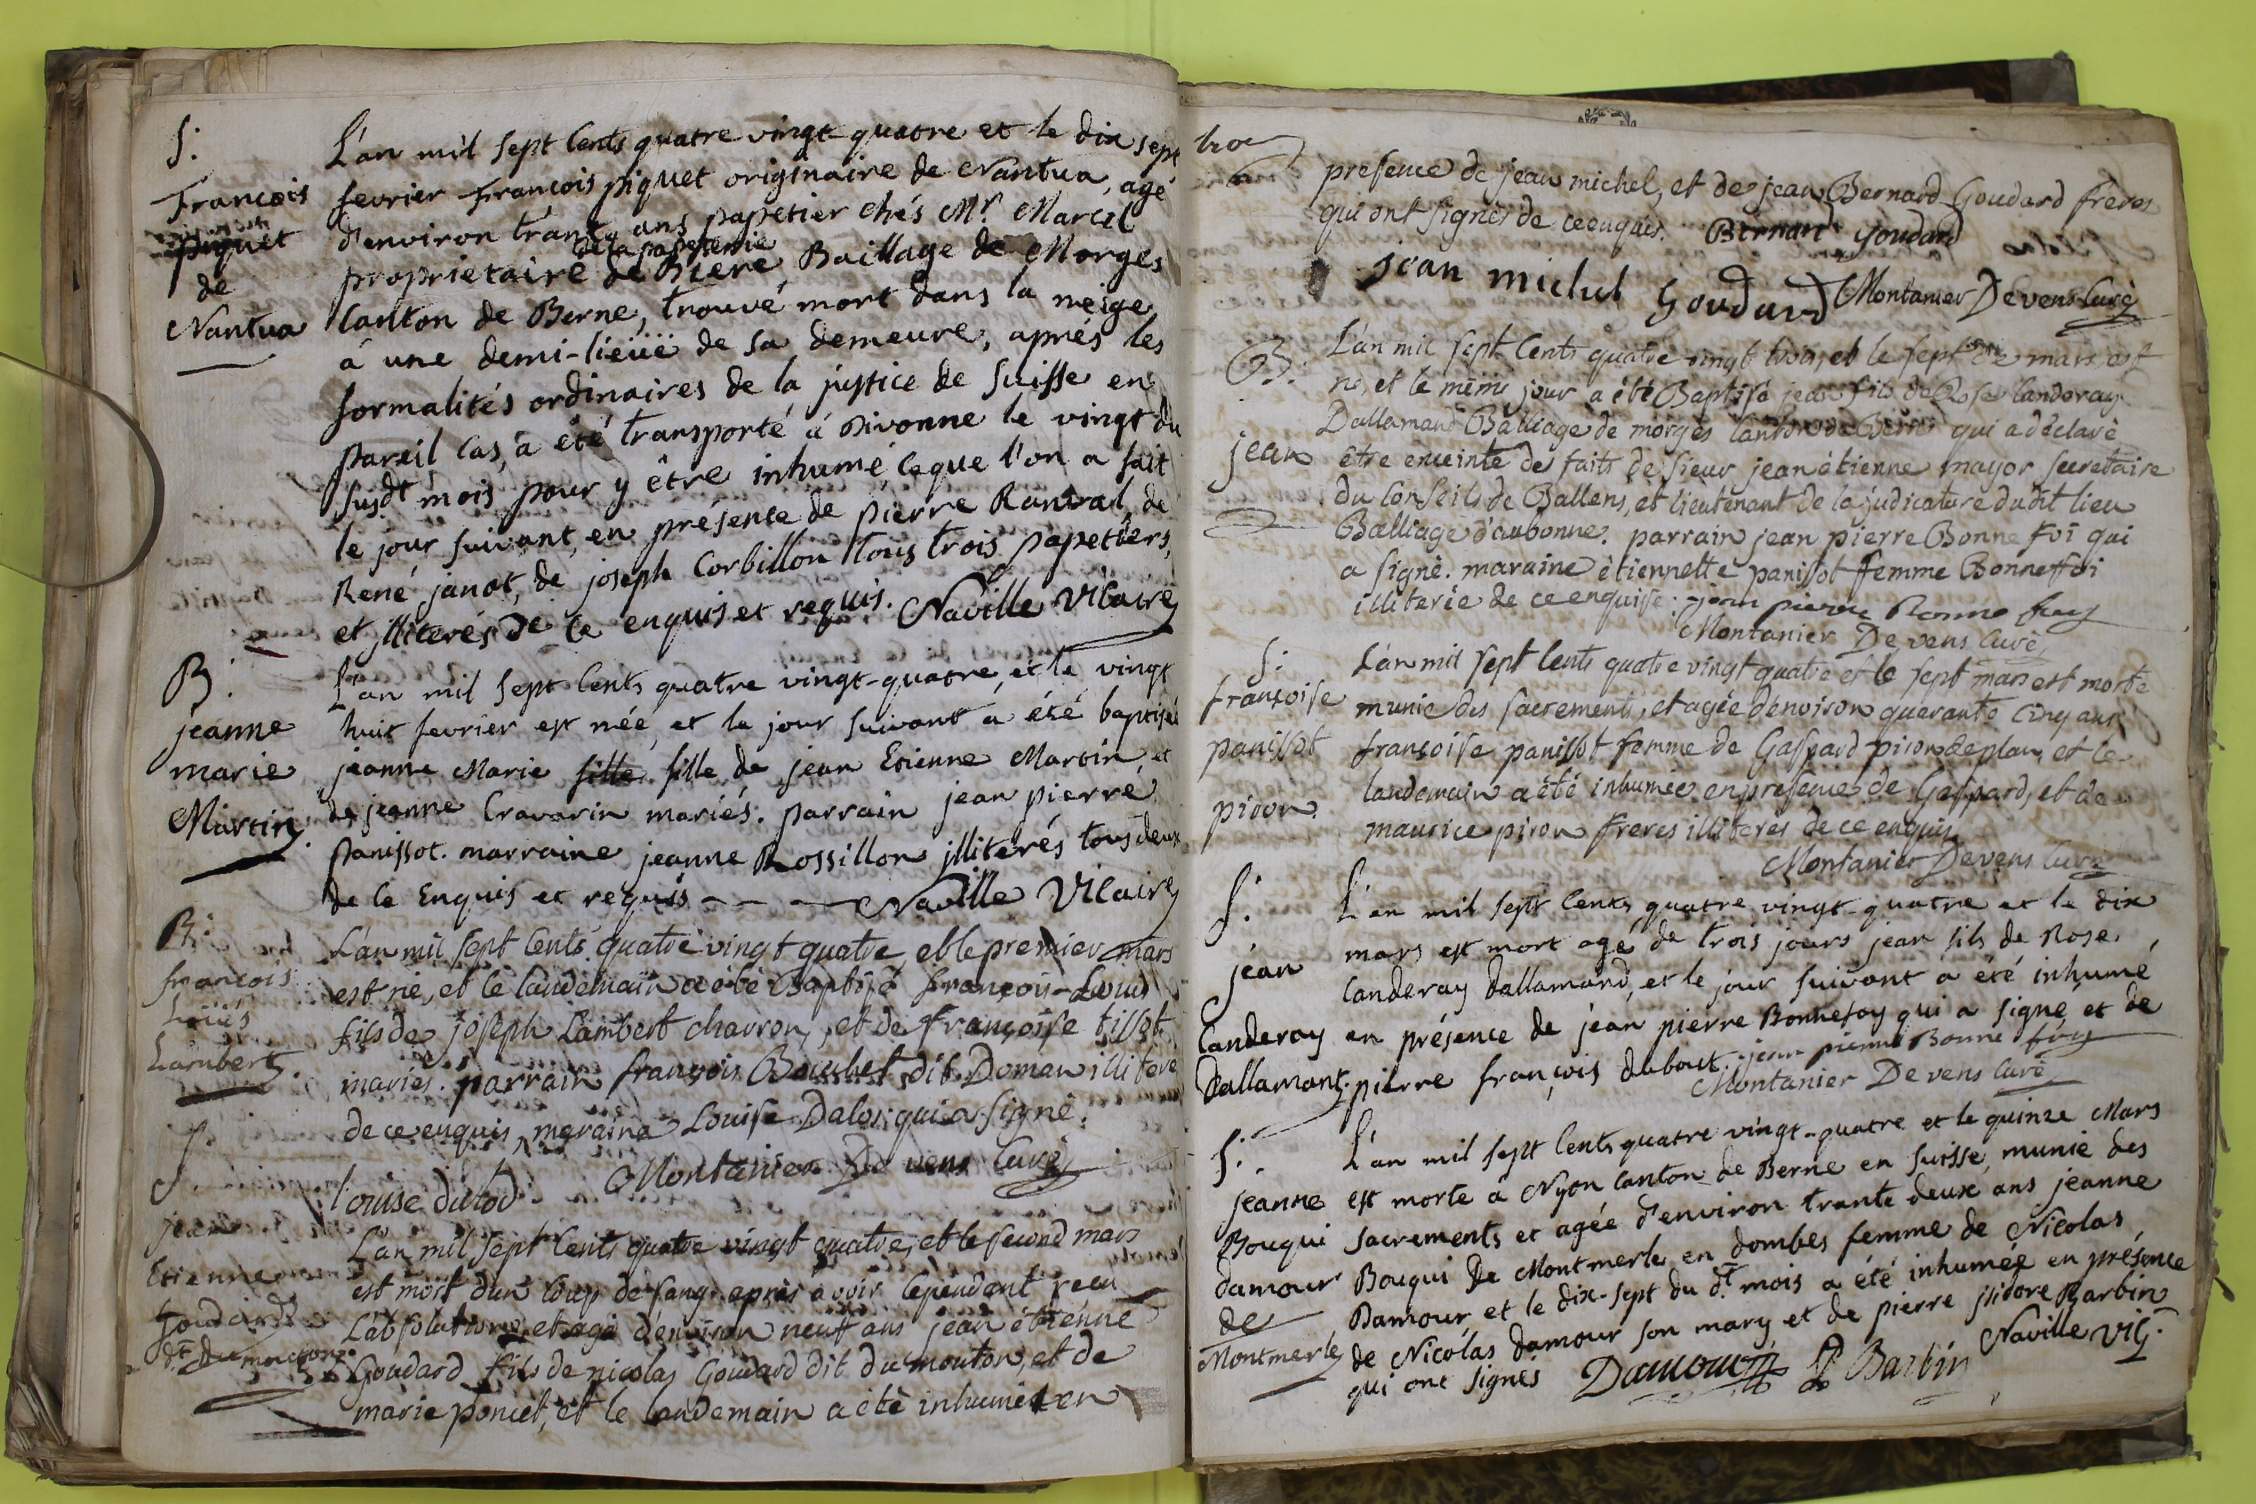 S.
François
piquet
de
Nantua
L'an mil sept Cents quatre vingt-quatre et le dix sept
fevrier François piquet originaire de Nantua, agé
d'environ trante ans papetier chés Mr. Marcel
de la papeterie
proprietaire de Biere Baillage de Morges
Canton de Berne, trouvé mort dans la neige
à une demi-lieüe de sa demeure, aprés les
formalités ordinaires de la justice de Suisse en
pareil Cas, a été transporté à Divonne le vingt du
susdt mois pour y être inhumé, ce que l'on a fait
le jour suivant, en présence de pierre Ranvral, de
René janot, de joseph Corbillon tous trois papetiers,
et jlliterés de ce enquis et requis. Naville Vicaire
B.
jeanne
marie
Martin
L'an mil sept Cents quatre vingt-quatre, et le vingt
huit fevrier est née, et le jour suivant a été baptisée
jeanne Marie fille fille de jean Etienne Martin, et
de jeanne Cravarin mariés. parrain jean pierre
panissot. marraine jeanne Rossillon jlliterés tous deux
de ce Enquis et requis - - - Naville Vicaire
B.
françois
Loüis
Lambert.
L'an mil sept Cents quatre vingt quatre, et le premier mars
est né, et le landemain a été Baptisé françois-Louis
fils de joseph Lambert charron, et de françoise tissot
mariés. parrain françois Bouchet dit Doman illiteré
de ce enquis, maraine Louise Dalos qui a signé.
Montanier De vens Curé
louise dulod
S.
jean
Etienne
Goudard
dt. du mouton
L'an mil sept Cents quatre vingt quatre, et le second mars
est mort d'un Coup de sang apres avoir Cependant recu
L'absolution, et agé d'environ neuf ans jean étienne
Goudard fils de nicolas Goudard dit du mouton, et de
marie poncet, et le landemain a été inhumé en
presence de jean michel, et de jean Bernard Goudard freres
qui ont signés de ce enquis. Bernard Goudard
jean michel Goudard Montanier De vens Curé
B.
jean
L'an mil sept Cents quatre vingt trois, et le sept de mars est
né, et le même jour a été Baptisé jean fils de Rose Canderay
Dallamand Balliage de morges Canton de Berne qui a déclaré
être enceinte de faits de Sieur jean étienne mayor secretaire
du Conseils de Ballens, et lieutenant de la judicature dudit lieu
Balliage d'aubonne. parrain jean pierre Bonne foi qui
a signé. maraine étiennette panissot femme Bonneffoi
illiterée de ce enquise. jean pierre Bonne foey
Montanier De vens Curé
S.
françoise
panissot
piron
L'an mil sept Cents quatre vingt quatre et le sept mars est morte
munie des sacrements, et agée d'environ quarante Cinq ans
françoise panissot femme de Gaspard piron de plan, et le
landemain a été inhumée en presence de Gaspard, et de
maurice piron freres illiterés de ce enquis
Montanier De vens Curé
S.
jean
Canderay
Dallamant.
L'an mil sept Cents quatre vingt-quatre et le dix
mars est mort agé de trois jours jean fils de Rose
Canderay Dallamand, et le jour suivant a été inhumé
en présence de jean pierre Bonnefoy qui a signé, et de
pierre françois dubout. jean pierre Bonne foey
Montanier De vens Curé
S.
jeanne
Bouqui
damour
de
Montmerle
L'an mil sept Cents quatre vingt-quatre et le quinze Mars
est morte à Nyon Canton de Berne en Suisse, munie des
sacrements et agée d'environ trante deux ans jeanne
Bouqui de Montmerle en dombes femme de Nicolas
Damour, et le dix-sept du dt mois a été inhumée en présence
de Nicolas damour son mary, et de pierre jsidore Barbin
qui ont signés Damour P Barbin Naville Vic.